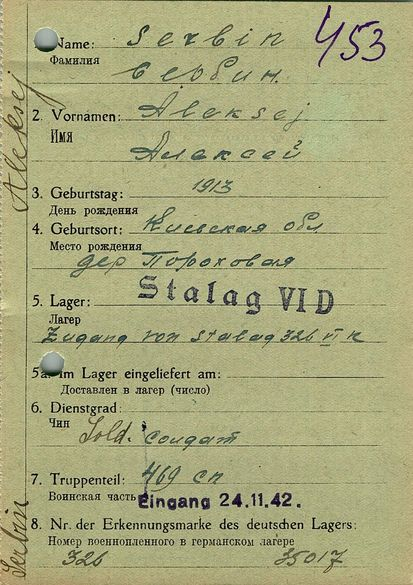 Name: Serbin 453
Фамилия
Сербин.
2. Vornamen: Aleksej
Имя
Алексей
3. Geburtstag: 1913
День рождения
4. Geburtsort: Киевская обл
Место рождения
дер Пороховая
5. Lager: Stalag VI D
Лагер
Zugang von Stalag 326 VI K
5a. Im Lager eingeliefert am:
Доставлен в лагер (число)
6. Dienstgrad:
Чин
Sold. солдат
7. Truppenteil: 469 сп
Воинская часть
Eingang 24.11.42.
8. Nr. der Erkennungsmarke des deutschen Lagers:
Номер военнопленного в германском лагере
326 35017
Serbin Aleksej